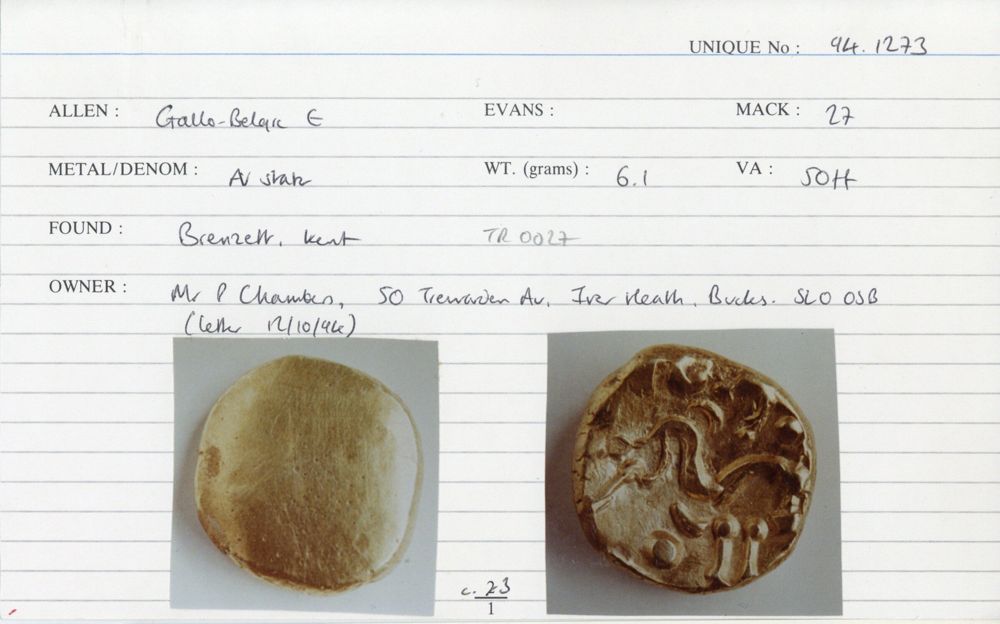 UNIQUE No : 94.1273
ALLEN : Gallo-Belgic E EVANS : MACK : 27
METAL/DENOM : AV stater WT. (grams) : 6.1 VA : 50ff
FOUND : Brenzett, Kent TR 0027
OWNER : Mr P Chambers, 50 Trewarden Av, Iver Heath, Bucks. SL0 0SB
(letter 12/10/94)
c. 23
1